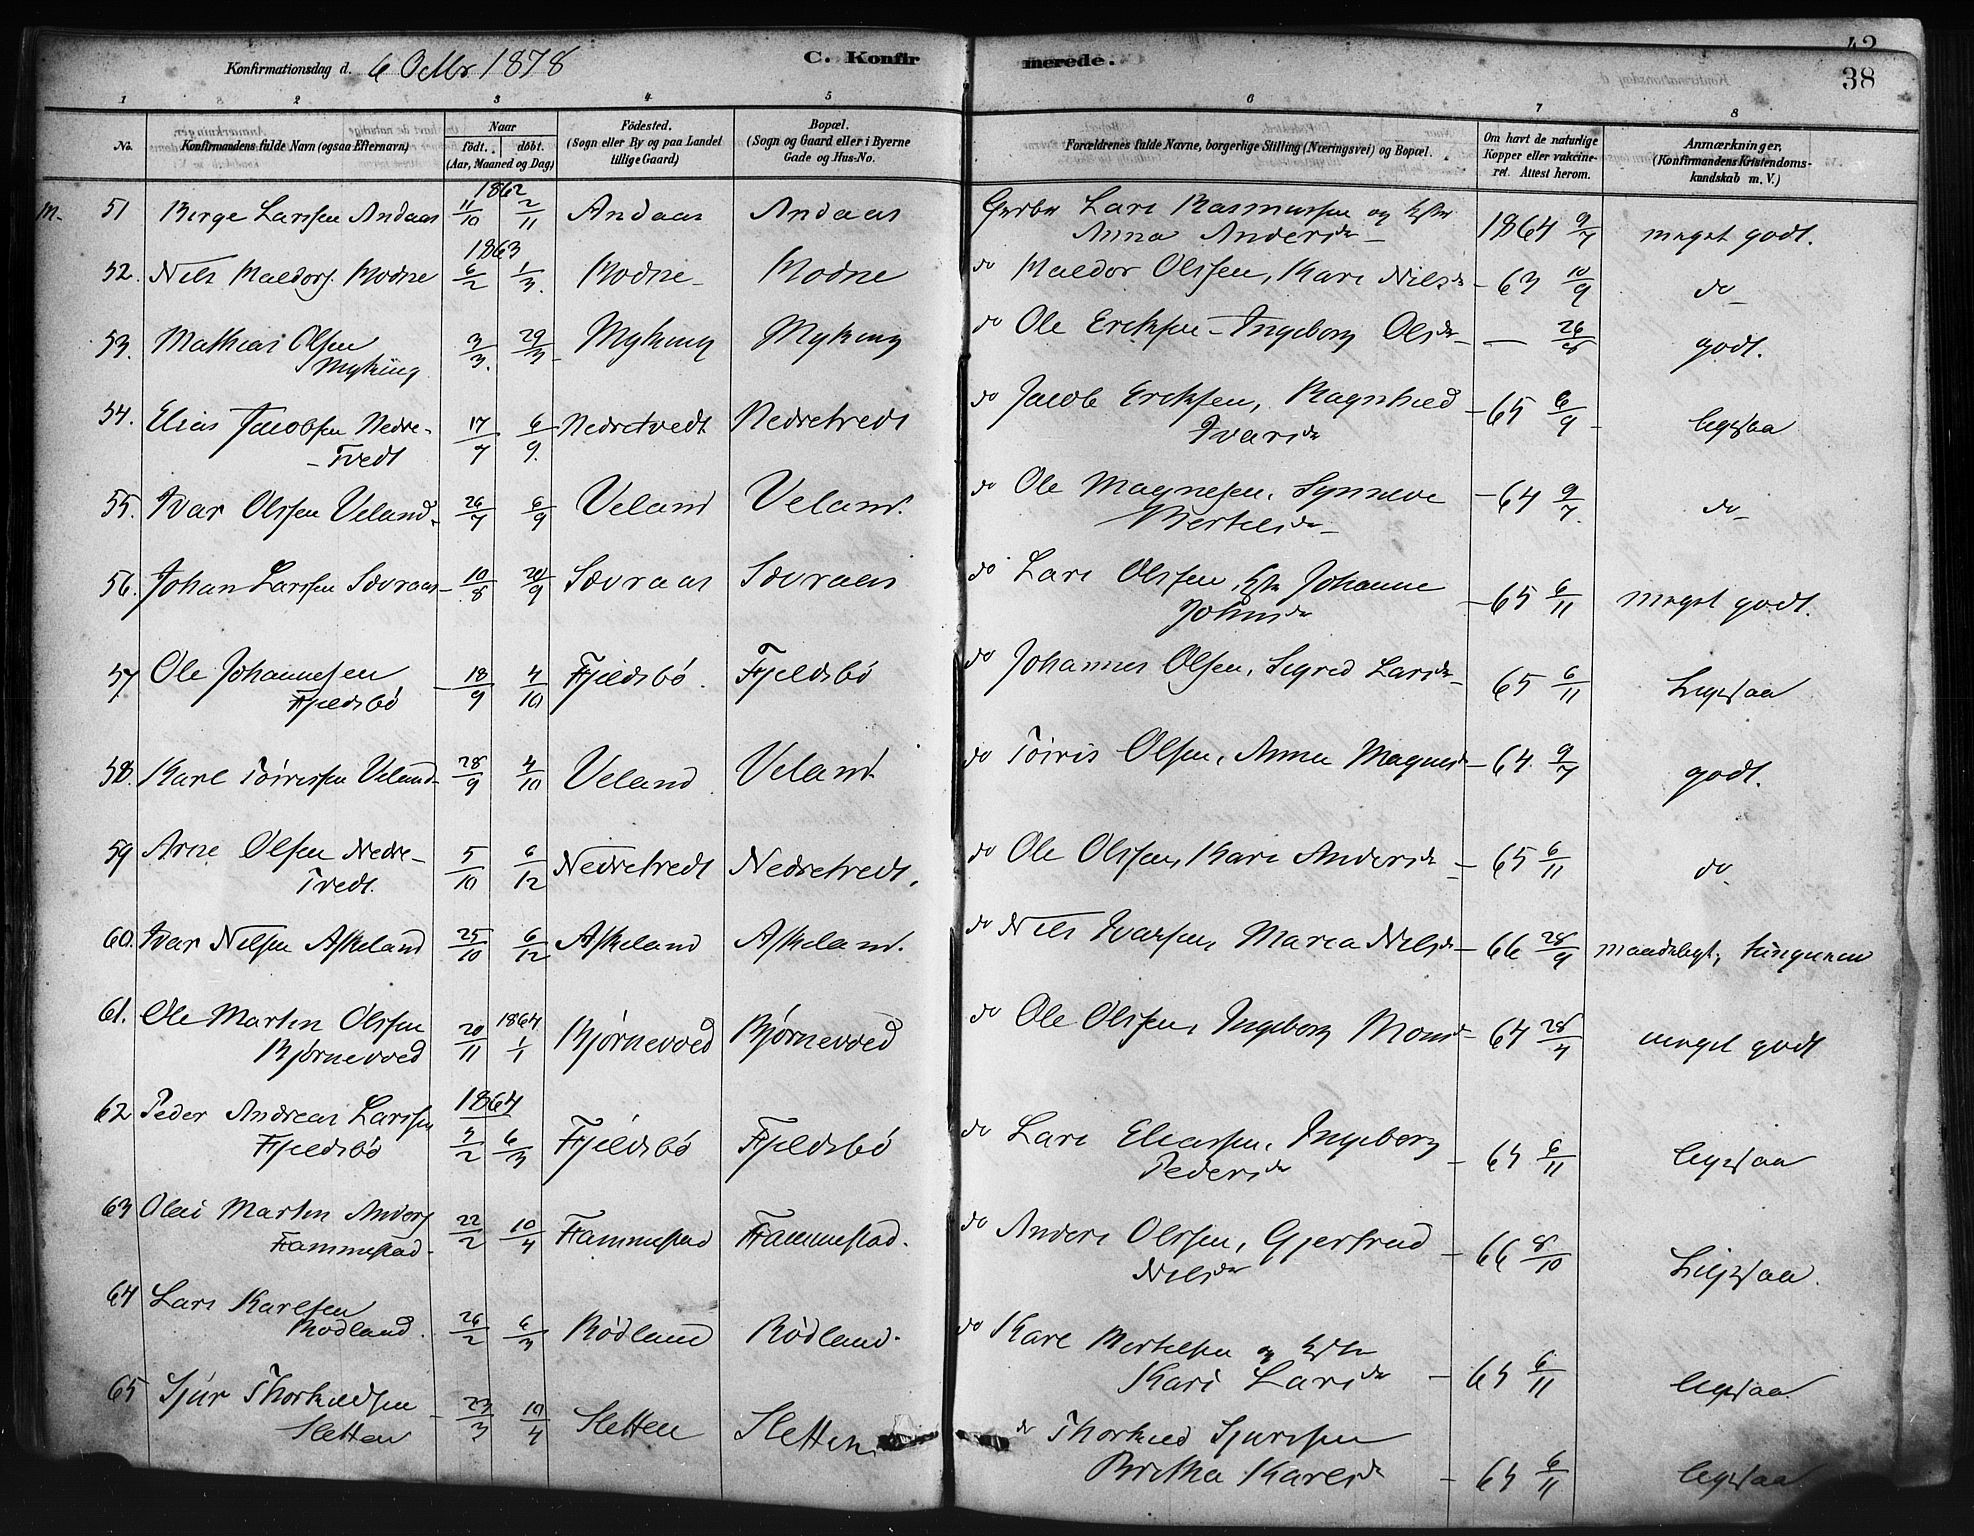 42
Konfirmationsdag d. 6 Octbr 1878 C. Konfirmerede. 38
1 2 3 4 5 6 7 8
No. Konfirmandens fulde Navn (ogsaa Efternavn) Naar födt. döbt. (Aar, Maaned og Dag) Födested. (Sogn eller By og paa Landet tillige Gaard) Bopæl. (Sogn og Gaard eller i Byerne Gade og Hus-No. Forældrenes fulde Navne, borgerlige Stilling (Næringsvei) og Bopæl. Om havt de naturlige Kopper eller vakcineret. Attest herom. Anmærkninger, (Konfirmandens Kristendomskundskab m. V.)
1862
M. 51 Birge Larssen Andaas 11/10 2/11 Andaas Andaas Grdbr Lars Rasmussen og Hstr
Anna Andersdr 1864 9/7 meget godt.
1863
52. Nils Haldors. Bodne 6/2 1/3. Bodne Bodne do Haldor Olssen, Kari Nilsdr - 63 10/9 do
53. Mathias Olsen 3/3. 29/3 Myking Myking do Ole Eriksen - Ingeborg Olsdr — 26/8 godt.
Myking
54. Elias Jacobsen Nedre- 17/7 6/9. Nedretvedt Nedretvedt do Jacob Eriksen, Ragnhild - 65 6/9 ligesaa
- Tvedt Ivarsdr
55. Ivar Olssen Veland 26/7 6/9 Veland Veland. do Ole Magnesen, Synneve - 64 9/7. do
Bertelsdr
56. Johan Larssen Sævraas 10/8 20/9 Sævraas Sævraas do Lars Olssen, Hstr Johanne
Johnsdr - 65 6/11 meget godt.
57 Ole Johannesen 18/9 4/10 Fjeldsbö. Fjeldsbö do Johannes Olsen, Sigrid Larsdr 65 6/11 Ligesaa
Fjeldsbö
58. Karl Töirissen Veland 28/9 4/10 Veland Veland. do Töiris Olsen, Anna Magnesdr - 64. 9/7 godt.
59 Arne Olsen Nedre- 5/10 6/12 Nedretvedt Nedretvedt. do Ole Olssen, Kari Andersdr - 65 6/11 do
Tvedt.
60. Ivar Nilsen Askeland 25/10 6/12 Askeland Askeland. do Nils Ivarsen, Maria Nilsdr - 66 28/9 maadeligt,
61. Ole Martin Olssen 20/11 1864 1/1 Bjørnevoed Bjørnevoed do Ole Olssen, Ingeborg Monsdr 64 28/4 meget godt
Bjørnevoed
1864
62 Peder Andreas Larssen 5/2 6/3 Fjeldsbö Fjeldsbö do Lars Eliassen, Ingeborg
Fjeldsbö Pedersdr - 65 6/11 ligesaa
63 Olai Martin Anders. 22/2 10/4 Fammestad Fammestad. do Anders Olssen, Gjertrud
Fammestad. Nilsdr - 66 8/10 Ligesaa.
64 Lars Karlsen 26/2 6/3 Rödland Rödland. do Karl Bertelsen og Hstr
Rödland. Kari Larsdr - 65 6/11 ligesaa
65 Sjur Thorkildsen 23/3 10/4 Sletten Sletten, do Thorkild Sjurssen
Sletten Britha Karlsdr - 65 6/11 ligesaa